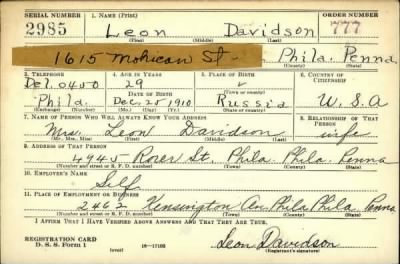 SERIAL NUMBER 1. NAME (Print) ORDER NUMBER
2985 Leon Davidson 777
(First) (Middle) (Last)
1615 Mohican St. Phila. Penna
(Town) (County) (State)
3. TELEPHONE 4. AGE IN YEARS 5. PLACE OF BIRTH 6. COUNTRY OF CITIZENSHIP
Del. 0450 29
DATE OF BIRTH (Town or county)
Phila. Dec. 20 1910 Russia U.S.A
(Exchange) (Number) (Mo.) (Day) (Yr.) (State or country)
7. NAME OF PERSON WHO WILL ALWAYS KNOW YOUR ADDRESS 8. RELATIONSHIP OF THAT PERSON
Mrs. Leon Davidson wife
(Mr., Mrs., Miss) (First) (Middle) (Last)
9. ADDRESS OF THAT PERSON
4945 Rorer St. Phila. Phila. Penna
(Number and street or R. F. D. number) (Town) (County) (State)
10. EMPLOYER'S NAME
Self
11. PLACE OF EMPLOYMENT OR BUSINESS
2462 Kensington Av. Phila Phila. Penna
(Number and street or R. F. D. number) (Town) (County) (State)
I AFFIRM THAT I HAVE VERIFIED ABOVE ANSWERS AND THAT THEY ARE TRUE.
REGISTRATION CARD
D. S. S. Form 1 (over) 16—17105 Leon Davidson
(Registrant's signature)